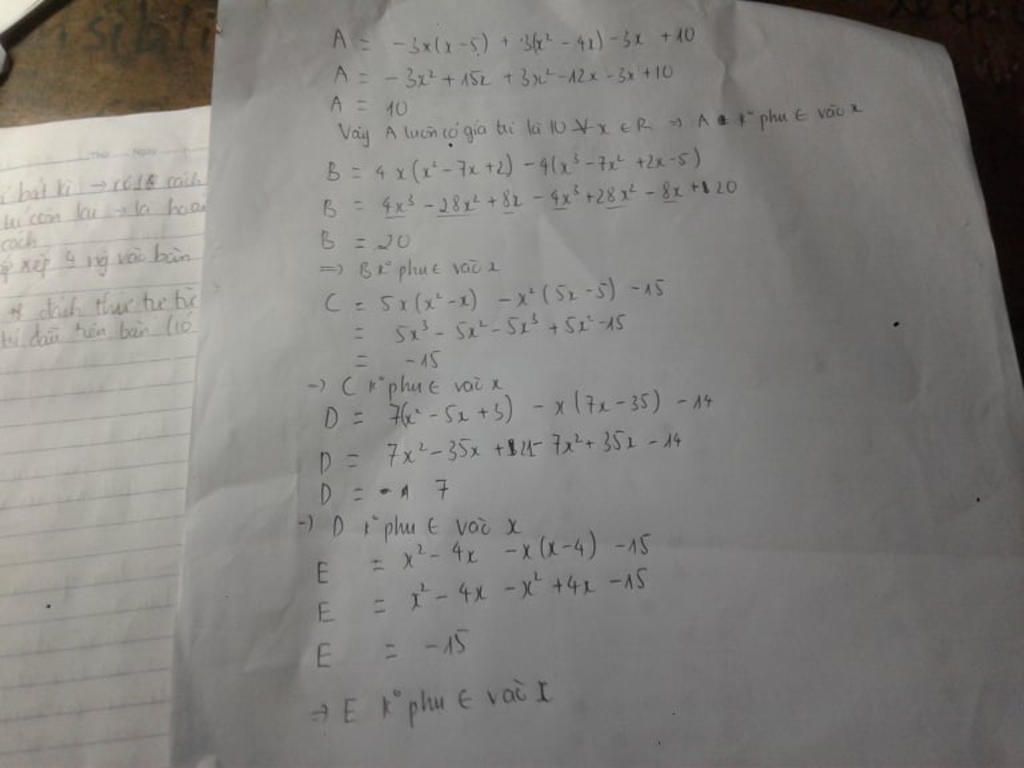 A = -3x(x-5) + 3(x² - 4x) - 3x + 10
A = -3x² + 15x + 3x² - 12x - 3x + 10
A = 10
Vậy A luôn có giá trị là 10 ∀ x ∈ R ⇒ A k° phụ ∈ vào x
B = 4x(x² - 7x + 2) - 4(x³ - 7x² + 2x - 5)
B = 4x³ - 28x² + 8x - 4x³ + 28x² - 8x + 20
B = 20
⇒ B k° phụ ∈ vào x
C = 5x(x² - x) - x²(5x - 5) - 15
= 5x³ - 5x² - 5x³ + 5x² - 15
= -15
→ C k° phụ ∈ vào x
D = 7(x² - 5x + 3) - x(7x - 35) - 14
D = 7x² - 35x + 21 - 7x² + 35x - 14
D = 7
→ D k° phụ ∈ vào x
E = x² - 4x - x(x - 4) - 15
E = x² - 4x - x² + 4x - 15
E = -15
⇒ E k° phụ ∈ vào x
bất kì → cách
còn lại → là
cách
xếp 4 ng vào bàn